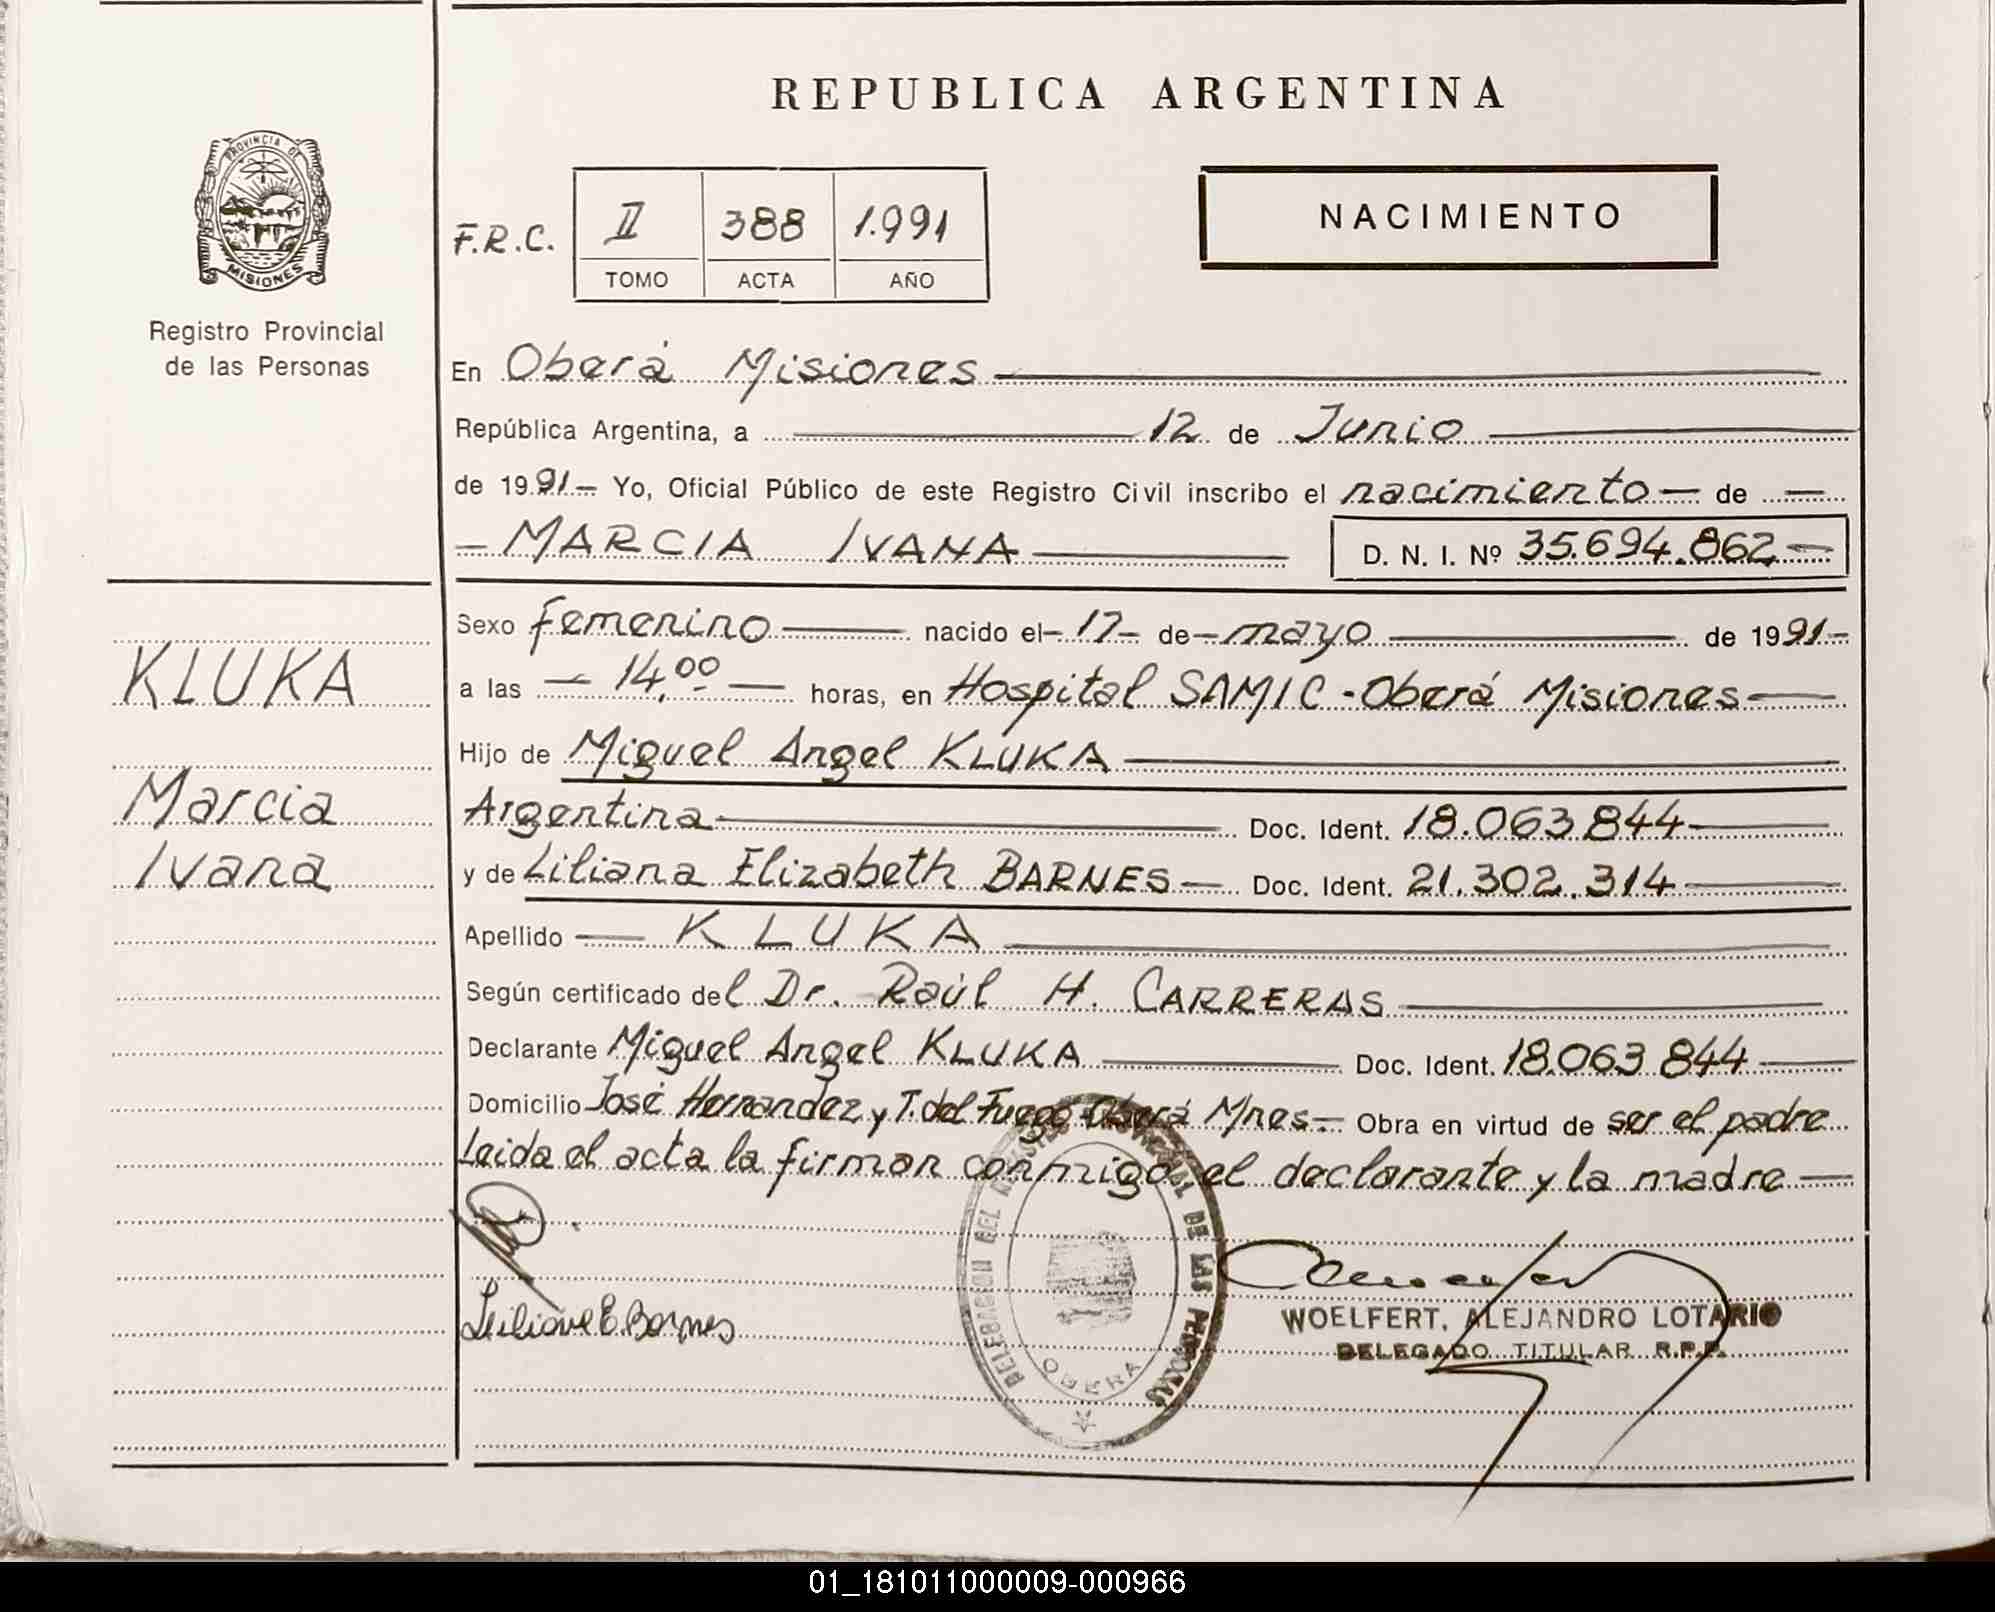 REPUBLICA ARGENTINA
PROVINCIA DE
MISIONES
Registro Provincial
de las Personas
F.R.C. II 388 1.991
TOMO ACTA AÑO
NACIMIENTO
En Oberá Misiones
República Argentina, a 12 de Junio
de 1991- Yo, Oficial Público de este Registro Civil inscribo el nacimiento - de -
- MARCIA IVANA D. N. I. Nº 35.694.862-
KLUKA
Marcia
Ivana
Sexo femenino nacido el - 17 - de - mayo de 1991-
a las - 14,00 - horas, en Hospital SAMIC - Oberá Misiones
Hijo de Miguel Angel KLUKA
Argentina Doc. Ident. 18.063.844
y de Liliana Elizabeth BARNES - Doc. Ident. 21.302.314
Apellido KLUKA
Según certificado del Dr. Raúl H. CARRERAS
Declarante Miguel Angel KLUKA Doc. Ident. 18.063.844
Domicilio José Hernandez y T. del Fuego - Oberá Mnes - Obra en virtud de ser el padre
Leida el acta la firman conmigo el declarante y la madre
DELEGACION DEL REGISTRO PROVINCIAL DE LAS PERSONAS
OBERA
WOELFERT, ALEJANDRO LOTARIO
DELEGADO TITULAR R.P.P.
01_181011000009-000966